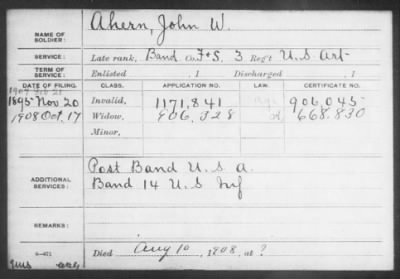 Ahern, John W.
NAME OF SOLDIER:
SERVICE: Late rank, Band Co. F&S. 3 Reg't U.S. Art.
TERM OF SERVICE: Enlisted , 1 Discharged , 1
DATE OF FILING. CLASS. APPLICATION NO. LAW. CERTIFICATE NO.
1895 Nov 20 Invalid, 1171,841 906,045
1908 Oct. 17 Widow, 906,328 668,830
Minor,
ADDITIONAL SERVICES:
Post Band U.S.A.
Band 14 U.S Inf
REMARKS:
Died Aug 10, 1908, at ?